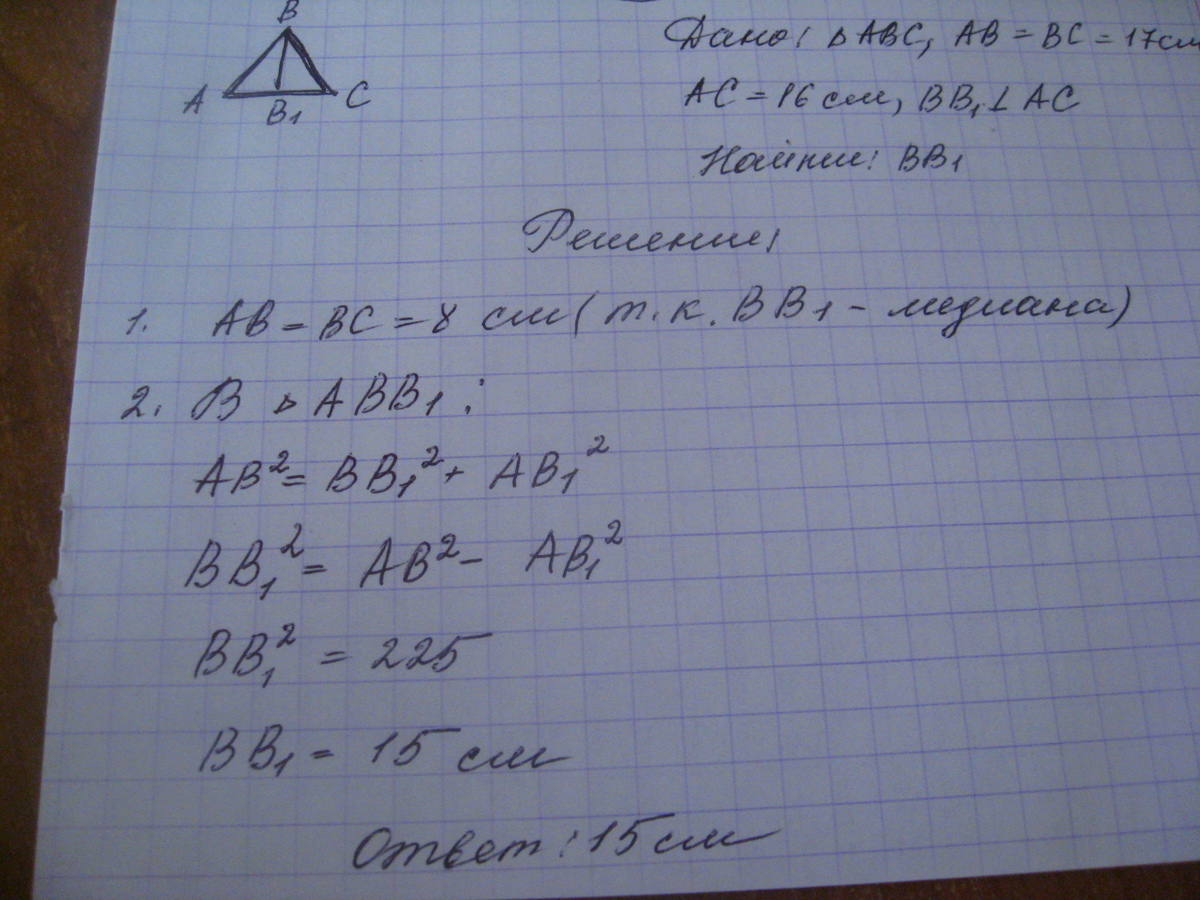 B
A
C
B₁
Дано: ▵ ABC, AB = BC = 17см
AC = 16 см, BB₁ ⊥ AC
Найти: BB₁
Решение:
1. AB = BC = 8 см (т.к. BB₁ - медиана)
2. В ▵ ABB₁:
AB² = BB₁² + AB₁²
BB₁² = AB² - AB₁²
BB₁² = 225
BB₁ = 15 см
Ответ: 15 см